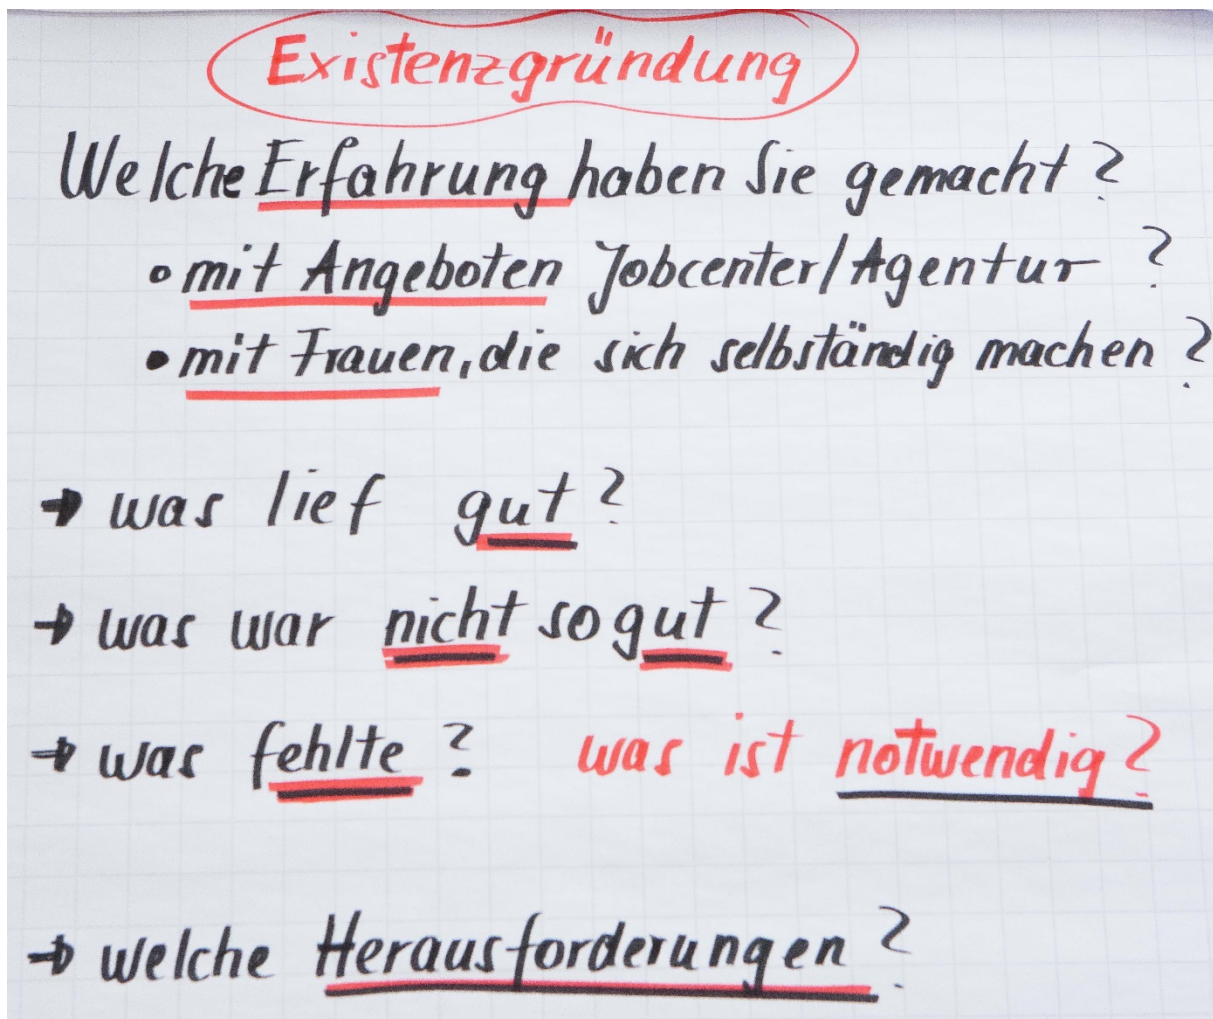 Existenzgründung
Welche Erfahrung haben Sie gemacht?
mit Angeboten Jobcenter/Agentur ?
mit Frauen, die sich selbständig machen?
→ was lief gut?
→ was war nicht so gut?
→ was fehlte? was ist notwendig?
→ welche Herausforderungen?